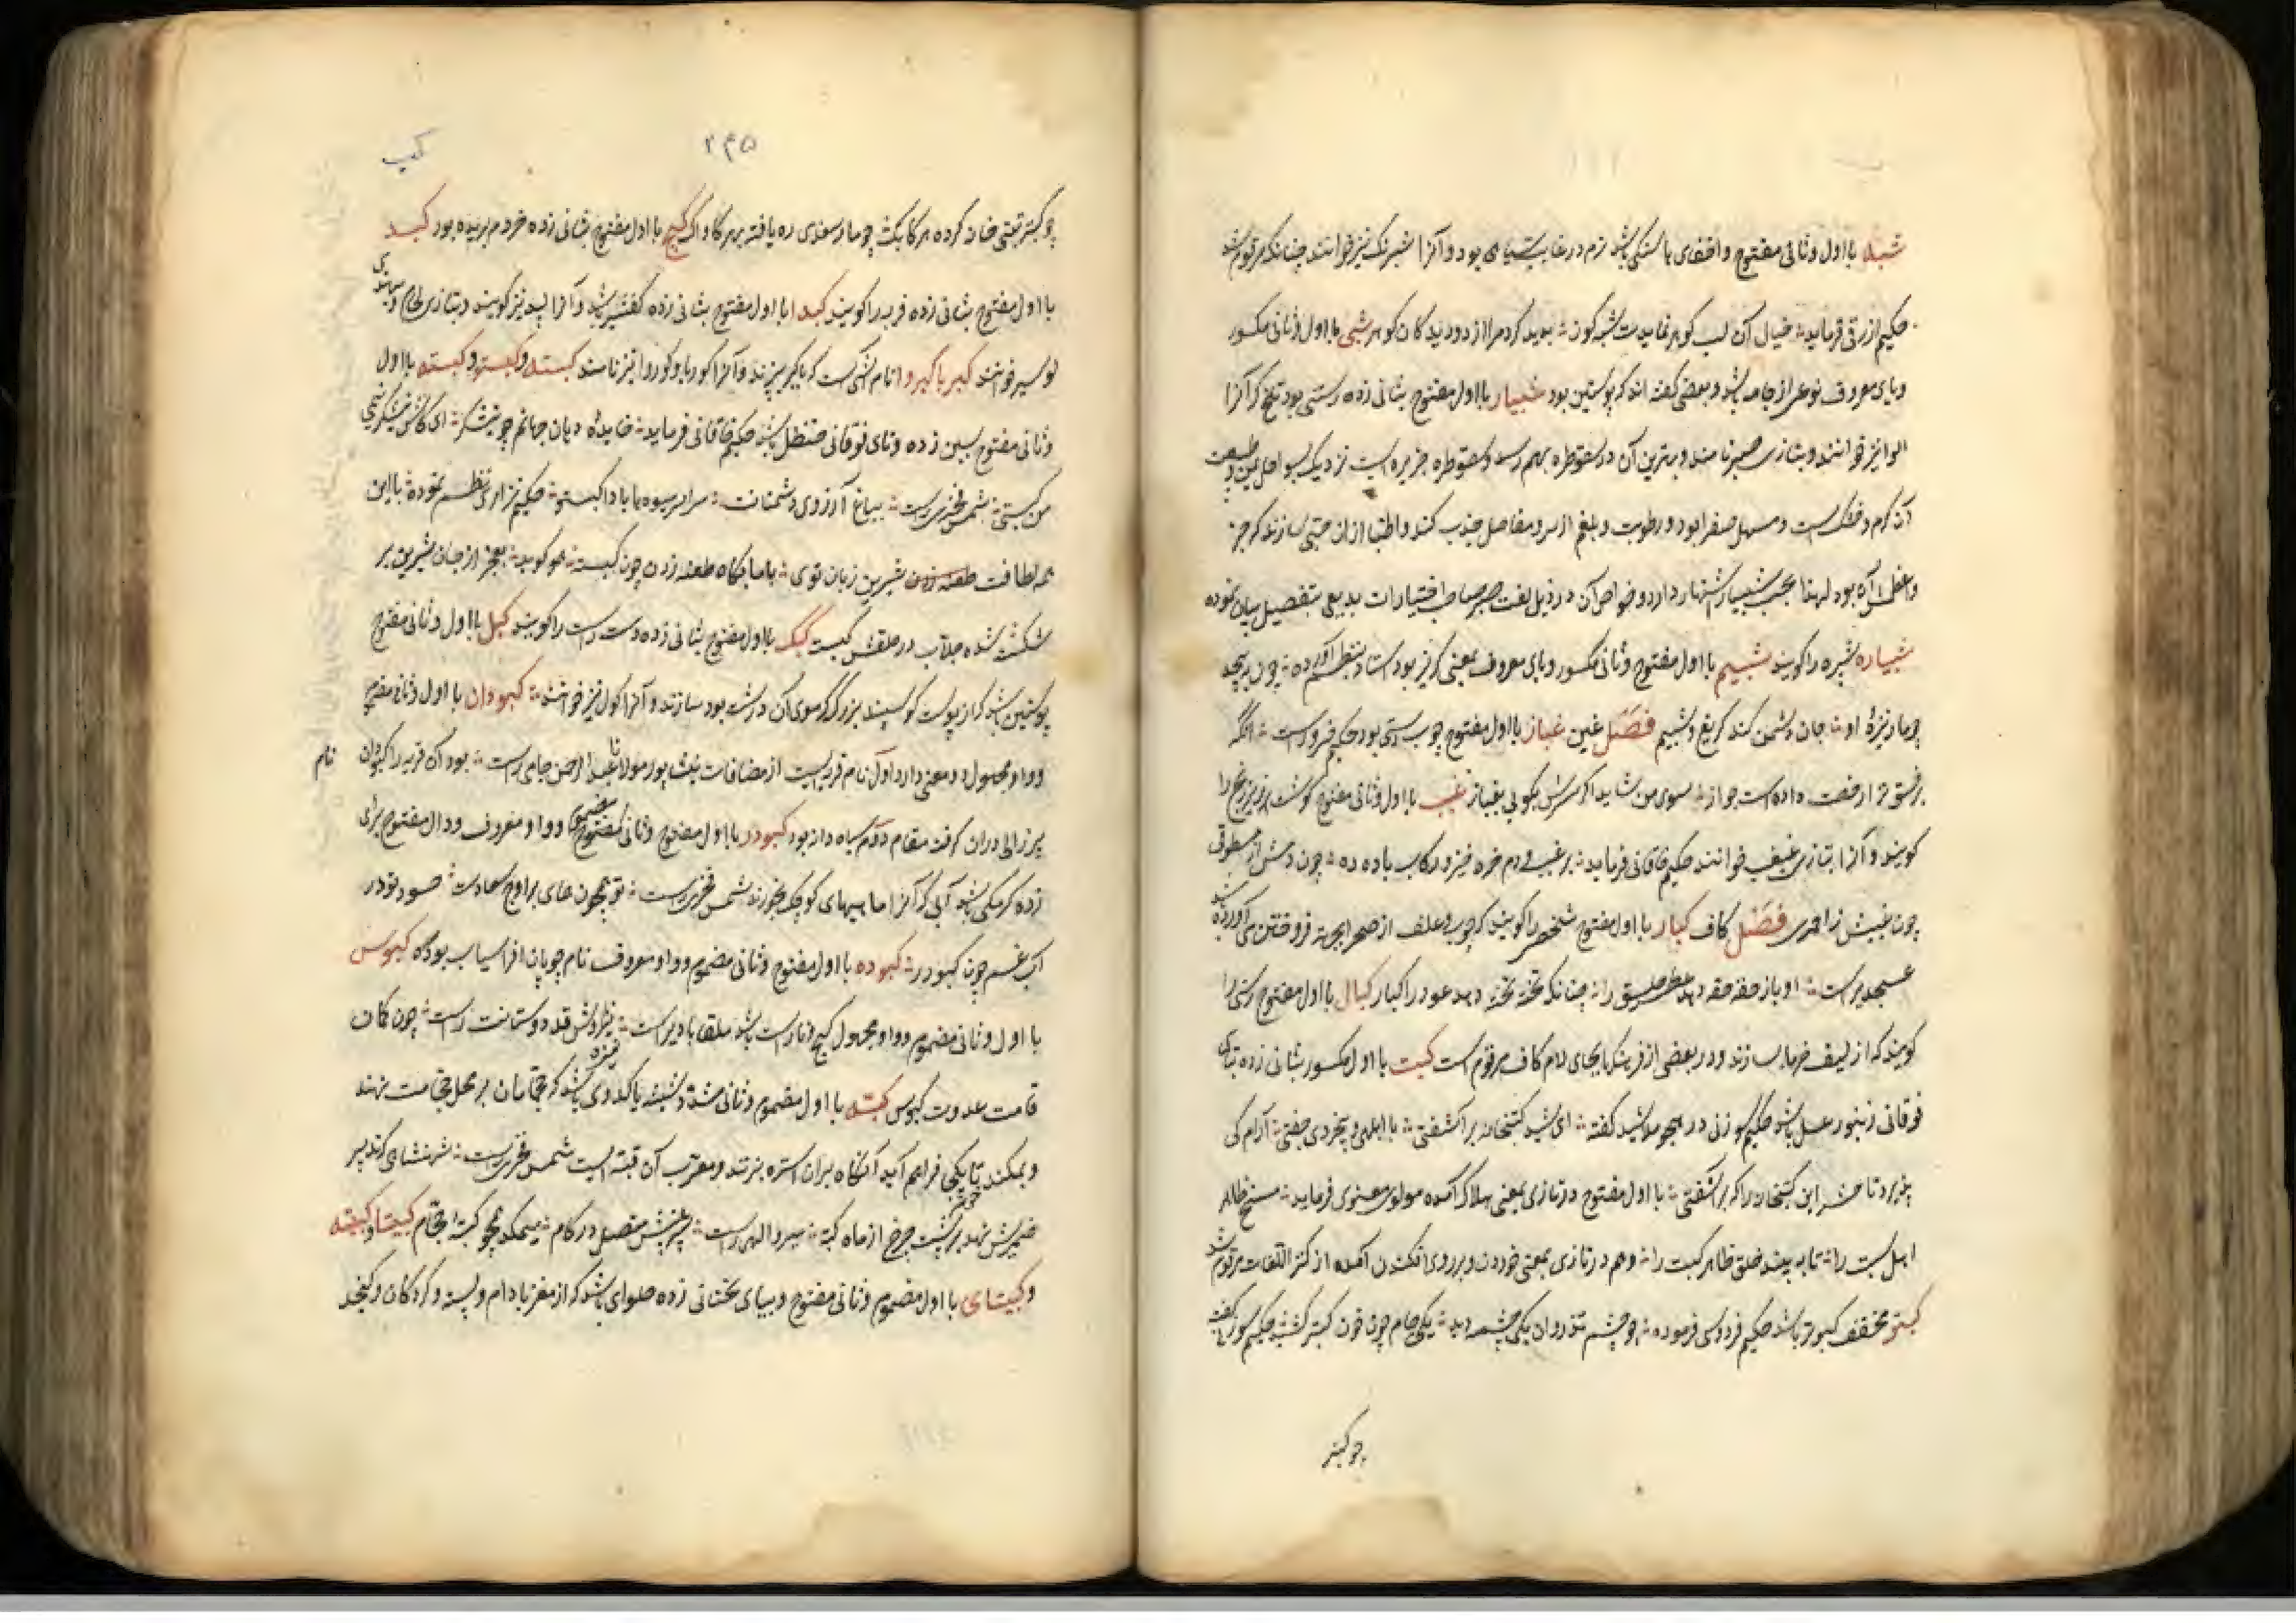 شبه با اول و ثانی مفتوح و اخفای ها سنگی باشد نرم در غایت سیاهی بود و آنرا شبرنگ نیز خوانند چنانکه مرقوم شد
حکیم ازرقی فرماید خیال آن لب کوهر نمایدت شبه کون پدید کرد مرا از دو دیده کان کوهر شبی با اول و ثانی مکسور
و یای معروف نوعی از جامه باشد و بعضی گفته اند که پوستین بود شبیار با اول مفتوح بثانی زده رستنی بود تلخ که آنرا
الوا نیز خوانند و بتازی صبر نامند و بهترین آن در سقوطره بهم رسد و سقوطره جزیره است نزدیک بسواحل یمن و طبیعت
آن گرم و خشکست و مسهل صفرا بود و رطوبت و بلغم از سر و مفاصل جذب کند و اطبا از ان حبی سازند که جز
و اعظمش آن بود لهذا بحب شبیار اشتهار دارد و خواص آن در ذیل لغت صبر صاحب اختیارات بدیعی بتفصیل بیان نموده
شبیاره شبپره را گویند شبیم با اول مفتوح و ثانی مکسور و یای معروف بمعنی گریز بود استاد بنظم آورده چون بر پیچد
چو مار نیزه او جان دشمن کند گریغ و شبیم فصل غین غباز با اول مفتوح چوب دستی بود حکیم فرموده است انکه
بر فسق ترا رخصت داده است جواز سوی من شاید اگر سرش بکوبی بغباز غبب با اول و ثانی مفتوح گوشت زیر زنخ را
گویند و آنرا بتازی غبغب خوانند حکیم خاقانی فرماید بر غبب و دم خره خیز و رکاب باده ده چون دمش از مطوقی
چون غببش ز احمری فصل کاف کبار با اول مفتوح شخصی را گویند که چوب و علف از صحرا بجهة فروختن می آورده باشد
عسجدیراست او باز حقه حقه دهد عطر خلق را چنانکه تخته تخته دهد عود را کبار کبال با اول مفتوح رسنی را
گویند که از لیف خرما سازند و در بعضی از فرهنگها بجای لام کاف مرقوم است کبت با اول مکسور بثانی زده بتای
فوقانی زنبور عسل باشد حکیم سوزنی در هجو ملا رشید گفته ای شید کبتخانه بر آشفتی با ابلهی و بیخردی جفتی آرام کی
پذیرد تا حشر این کبتخانه را که بر آشفتی با اول مفتوح در تازی بمعنی هلاک آمده مولوی معنوی فرماید مسخ ظاهر
اهل سبت را تا به بیند خلق ظاهر کبت را و هم در تازی بمعنی خوردن و بر روی افکندن آمده از کنز اللغات مرقوم شد
کبتر مخفف کبوتر باشد حکیم فردوسی فرموده چو چشم تذروان یکی چشمه دید یکی جام چون خون کبتر کشید حکیم سوزنی گفته
چو کبتر
۲۴۵
کب
چو کبتر تعتی خان کرده هر کابک چو مار سغدی ره یافته بهر کاواک کبج با اول مفتوح بثانی زده خر دم بریده بود کبد
با اول مفتوح بثانی زده فربه را گویند کبدا با اول مفتوح بثانی زده کفشیر باشد و آنرا لبد نیز گویند و بتازی لحام و بهندی
نوسیر خوانند کبر با کبروا نام آشی است که با کبر پزند و آنرا کوربا و کوروا نیز نامند کبسته و کبستو و کبسته با اول
و ثانی مفتوح بسین زده و تای فوقانی حنظل باشد حکیم خاقانی فرماید خاییده دهان جهانم چو نیشکر ای کاش نیشکر نیمی
من کبستمی شمس فخری راست بباغ آرزوی دشمنانت سراسر میوه ها بادا کبستو حکیم نزاری نظم نموده با این
همه لطافت طعنه زدن شیرین زبان توی با ما بگاه طعنه زدن چون کبسته هو گوید بعجز از جان شیرین بر
شکفت شده جلاب در حلقش کبست کبک با اول مفتوح بثانی زده دست راست را گویند کبل با اول و ثانی مفتوح
پوستین باشد که از پوست گوسپند بزرگ که موی آن درشت بود سازند و آنرا کول نیز خوانند کبودان با اول و ثانی مفتوح
و واو مجهول دو معنی دارد اول نام قریه ایست از مضافات نیشابور مولانا عبدالرحمن جامی راست بود آن قریه را کبودان نام
پیر زالی دران گرفته مقام دوم سیاه دانه بود کبودر با اول مفتوح و ثانی مضموم و واو معروف و دال مفتوح برای
زده کرمکی باشد آبی که آنرا ماهیهای کوچک بخورند شمس فخری راست تو همچون همای براوج سعادت حسود تو در
آب غم چون کبودر کبوده با اول مفتوح و ثانی مضموم و واو معروف نام چوپان افراسیاب بوده کبوس
با اول و ثانی مضموم و واو مجهول کج و ناراست باشد ملقابادیراست نیزه وش قد دوستانت راست چون کمان
قامت عدوت کبوس کبه با اول مضموم و ثانی مشدد شیشه یا کدوی باشد که حجامان بر محل حجامت نهند
و بمکند تا یکی فراهم آید آنگاه بران استره بزنند و معرب آن قبه است شمس فخری راست شهنشاهی که تدبیر
ضمیرش نهد بر پشت چرخ از ماه کبه سپر و الهی راست بر نیش متصل در کام میمکد همچو کبه حجام کبیتا و کبیته
و کبیتای با اول مضموم و ثانی مفتوح و بیای تحتانی زده حلوای باشد که از مغز بادام و پسته و گردکان و کنجد